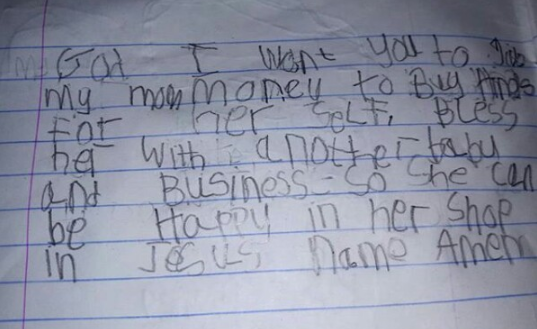 God I want you to
my mom money to Buy
For her SeLF, BLess
her with another baby
and Business - So She can
be Happy in her Shop
in Jesus, name Amen